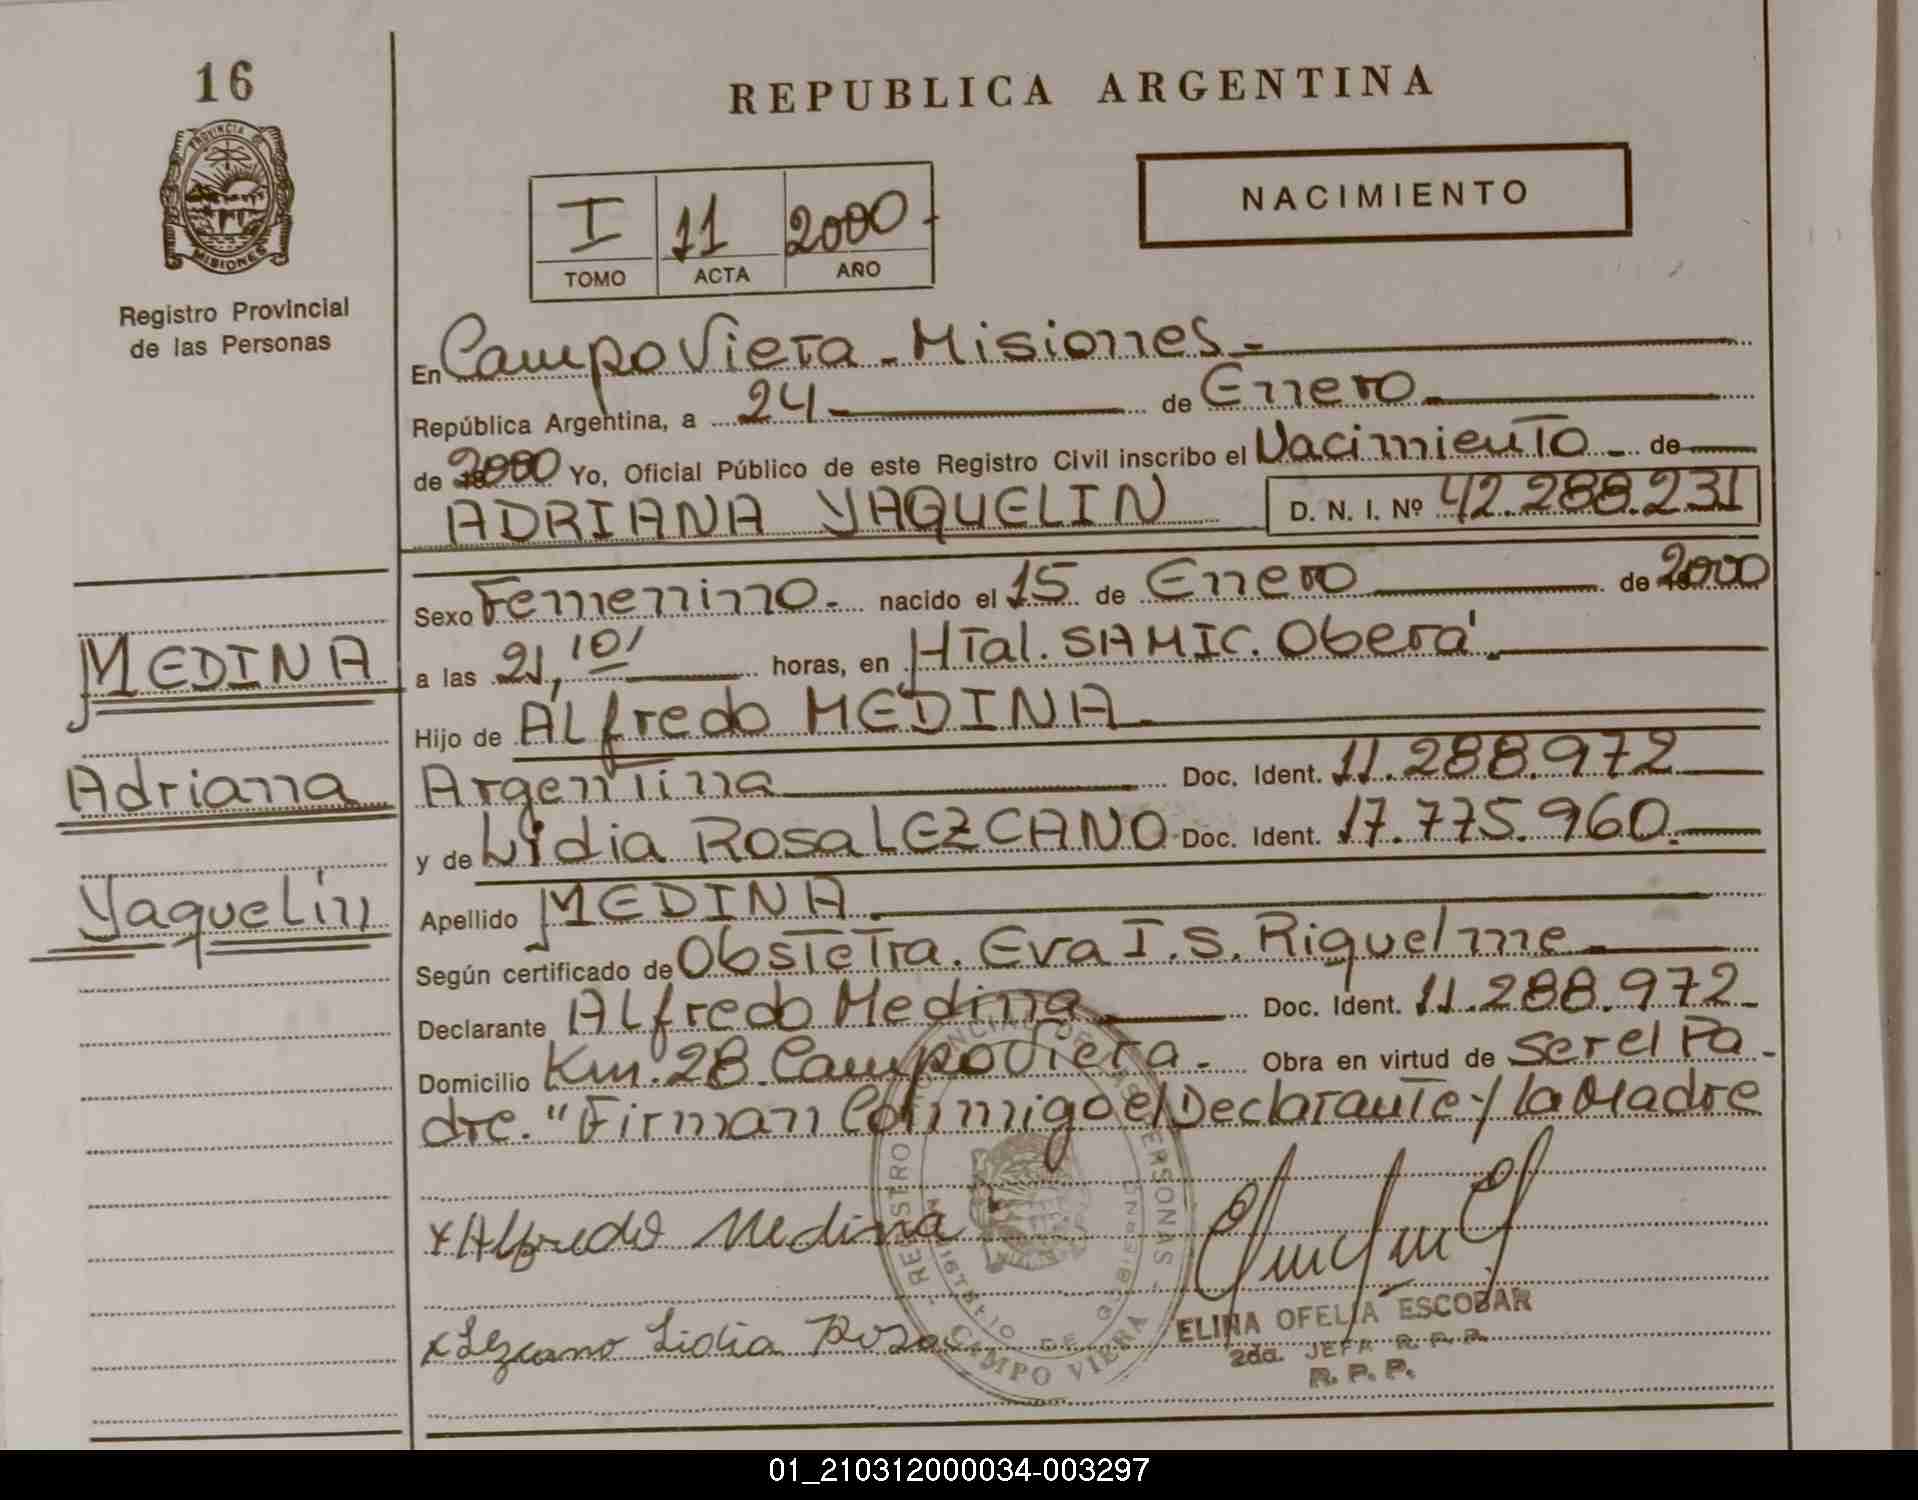 16
PROVINCIA DE
MISIONES
Registro Provincial
de las Personas
REPUBLICA ARGENTINA
NACIMIENTO
I 11 2000-
TOMO ACTA AÑO
En Campo Viera - Misiones -
República Argentina, a 24 de Enero
de 2000 Yo, Oficial Público de este Registro Civil inscribo el Nacimiento - de
ADRIANA YAQUELIN D. N. I. Nº 42.288.231
Sexo Femenino - nacido el 15 de Enero de 2000
a las 21,10' horas, en Htal. SAMIC. Oberá
Hijo de ALfredo MEDINA
Argentina Doc. Ident. 11.288.972
y de Lidia Rosa LEZCANO Doc. Ident. 17.775.960.
Apellido MEDINA
Según certificado de Obstetra. Eva I.S. Riquelme
Declarante ALfredo Medina Doc. Ident. 11.288.972
Domicilio Km. 28 Campo Viera - Obra en virtud de ser el Pa-
dre. "Firman Conmigo el Declarante y la Madre
MEDINA
Adriana
YaqueLin
x Alfredo Medina
x Lezcano Lidia Rosa
REGISTRO PROVINCIAL DE LAS PERSONAS
MINISTERIO DE GOBIERNO
CAMPO VIERA
ELINA OFELIA ESCOBAR
2da. JEFA R.P.P.
R. P. P.
01_210312000034-003297